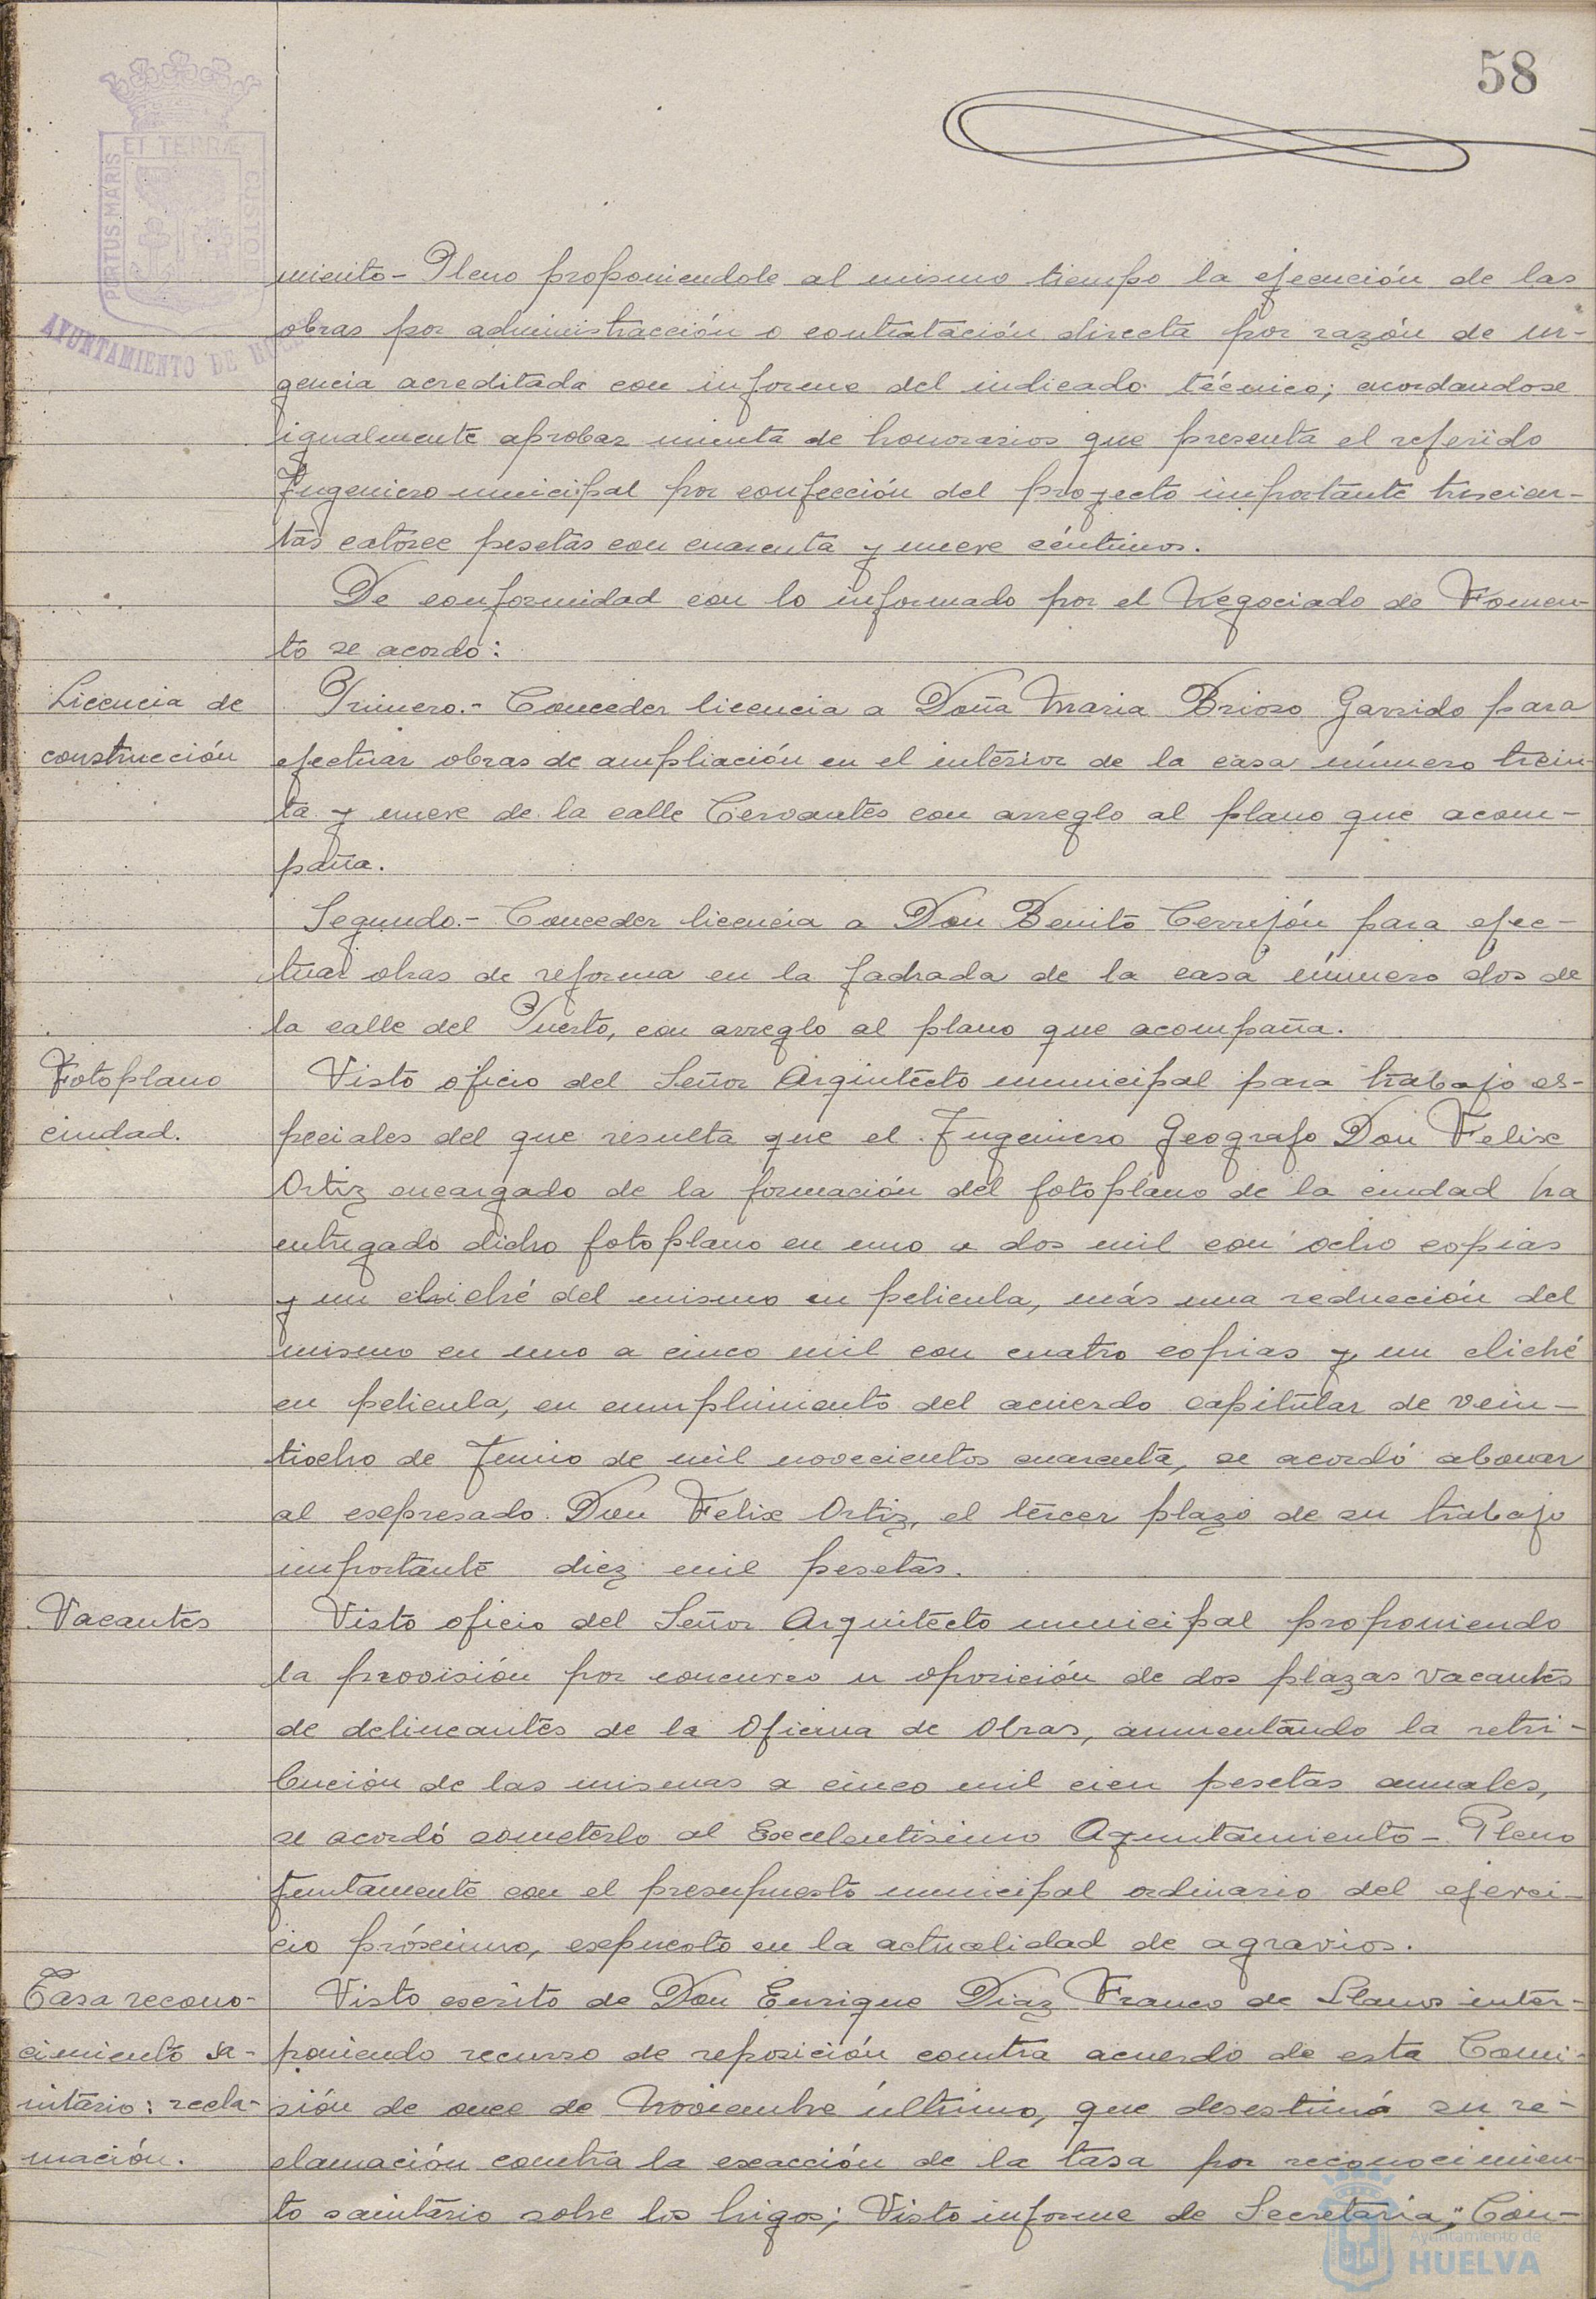 58
PORTUS MARIS ET TERRÆ CUSTOD
AYUNTAMIENTO DE HUEL
miento - Pleno proponiendole al mismo tiempo la ejecución de las
obras por administracción o contratación directa por razón de ur-
gencia acreditada con informe del indicado técnico; acordandose
igualmente aprobar minuta de honorarios que presenta el referido
Ingeniero municipal por confección del proyecto importante trescien-
tas catorce pesetas con cuarenta y nueve céntimos.
De conformidad con lo informado por el Negociado de Fomen-
to se acordó:
Licencia de
construcción
Primero.- Conceder licencia a Doña Maria Brioso Garrido para
efectuar obras de ampliación en el interior de la casa número trein-
ta y nueve de la calle Cervantes con arreglo al plano que acom-
paña.
Segundo.- Conceder licencia a Don Benito Cerrejón para efec-
tuar obras de reforma en la fachada de la casa número dos de
la calle del Puerto, con arreglo al plano que acompaña.
Fotoplano
ciudad.
Visto oficio del Señor Arquitecto municipal para trabajo es-
peciales del que resulta que el Ingeniero Geografo Don Felix
Ortiz encargado de la formación del fotoplano de la ciudad ha
entregado dicho fotoplano en uno a dos mil con ocho copias
y un cliché del mismo en pelicula, más una reducción del
mismo en uno a cinco mil con cuatro copias y un cliché
en pelicula, en cumplimiento del acuerdo capitular de vein-
tiocho de Junio de mil novecientos cuarenta, se acordó abonar
al expresado Don Felix Ortiz, el tercer plazo de su trabajo
importante diez mil pesetas.
Vacantes
Visto oficio del Señor Arquitecto municipal proponiendo
la provisión por concurso u oposición de dos plazas vacantes
de delineantes de la Oficina de Obras, aumentando la retri-
bución de las mismas a cinco mil cien pesetas anuales,
se acordó someterlo al Excelentisimo Ayuntamiento - Pleno
juntamente con el presupuesto municipal ordinario del ejerci-
cio próximo, expuesto en la actualidad de agravios.
Tasa recono-
cimiento sa-
nitario: recla-
mación.
Visto escrito de Don Enrique Diaz Franco de Llanos inter-
poniendo recurso de reposición contra acuerdo de esta Comi-
sión de once de Noviembre último, que desestimó su re-
clamación contra la exacción de la tasa por reconocimien-
to sanitario sobre los higos; Visto informe de Secretaria; "Con-
Ayuntamiento de
HUELVA